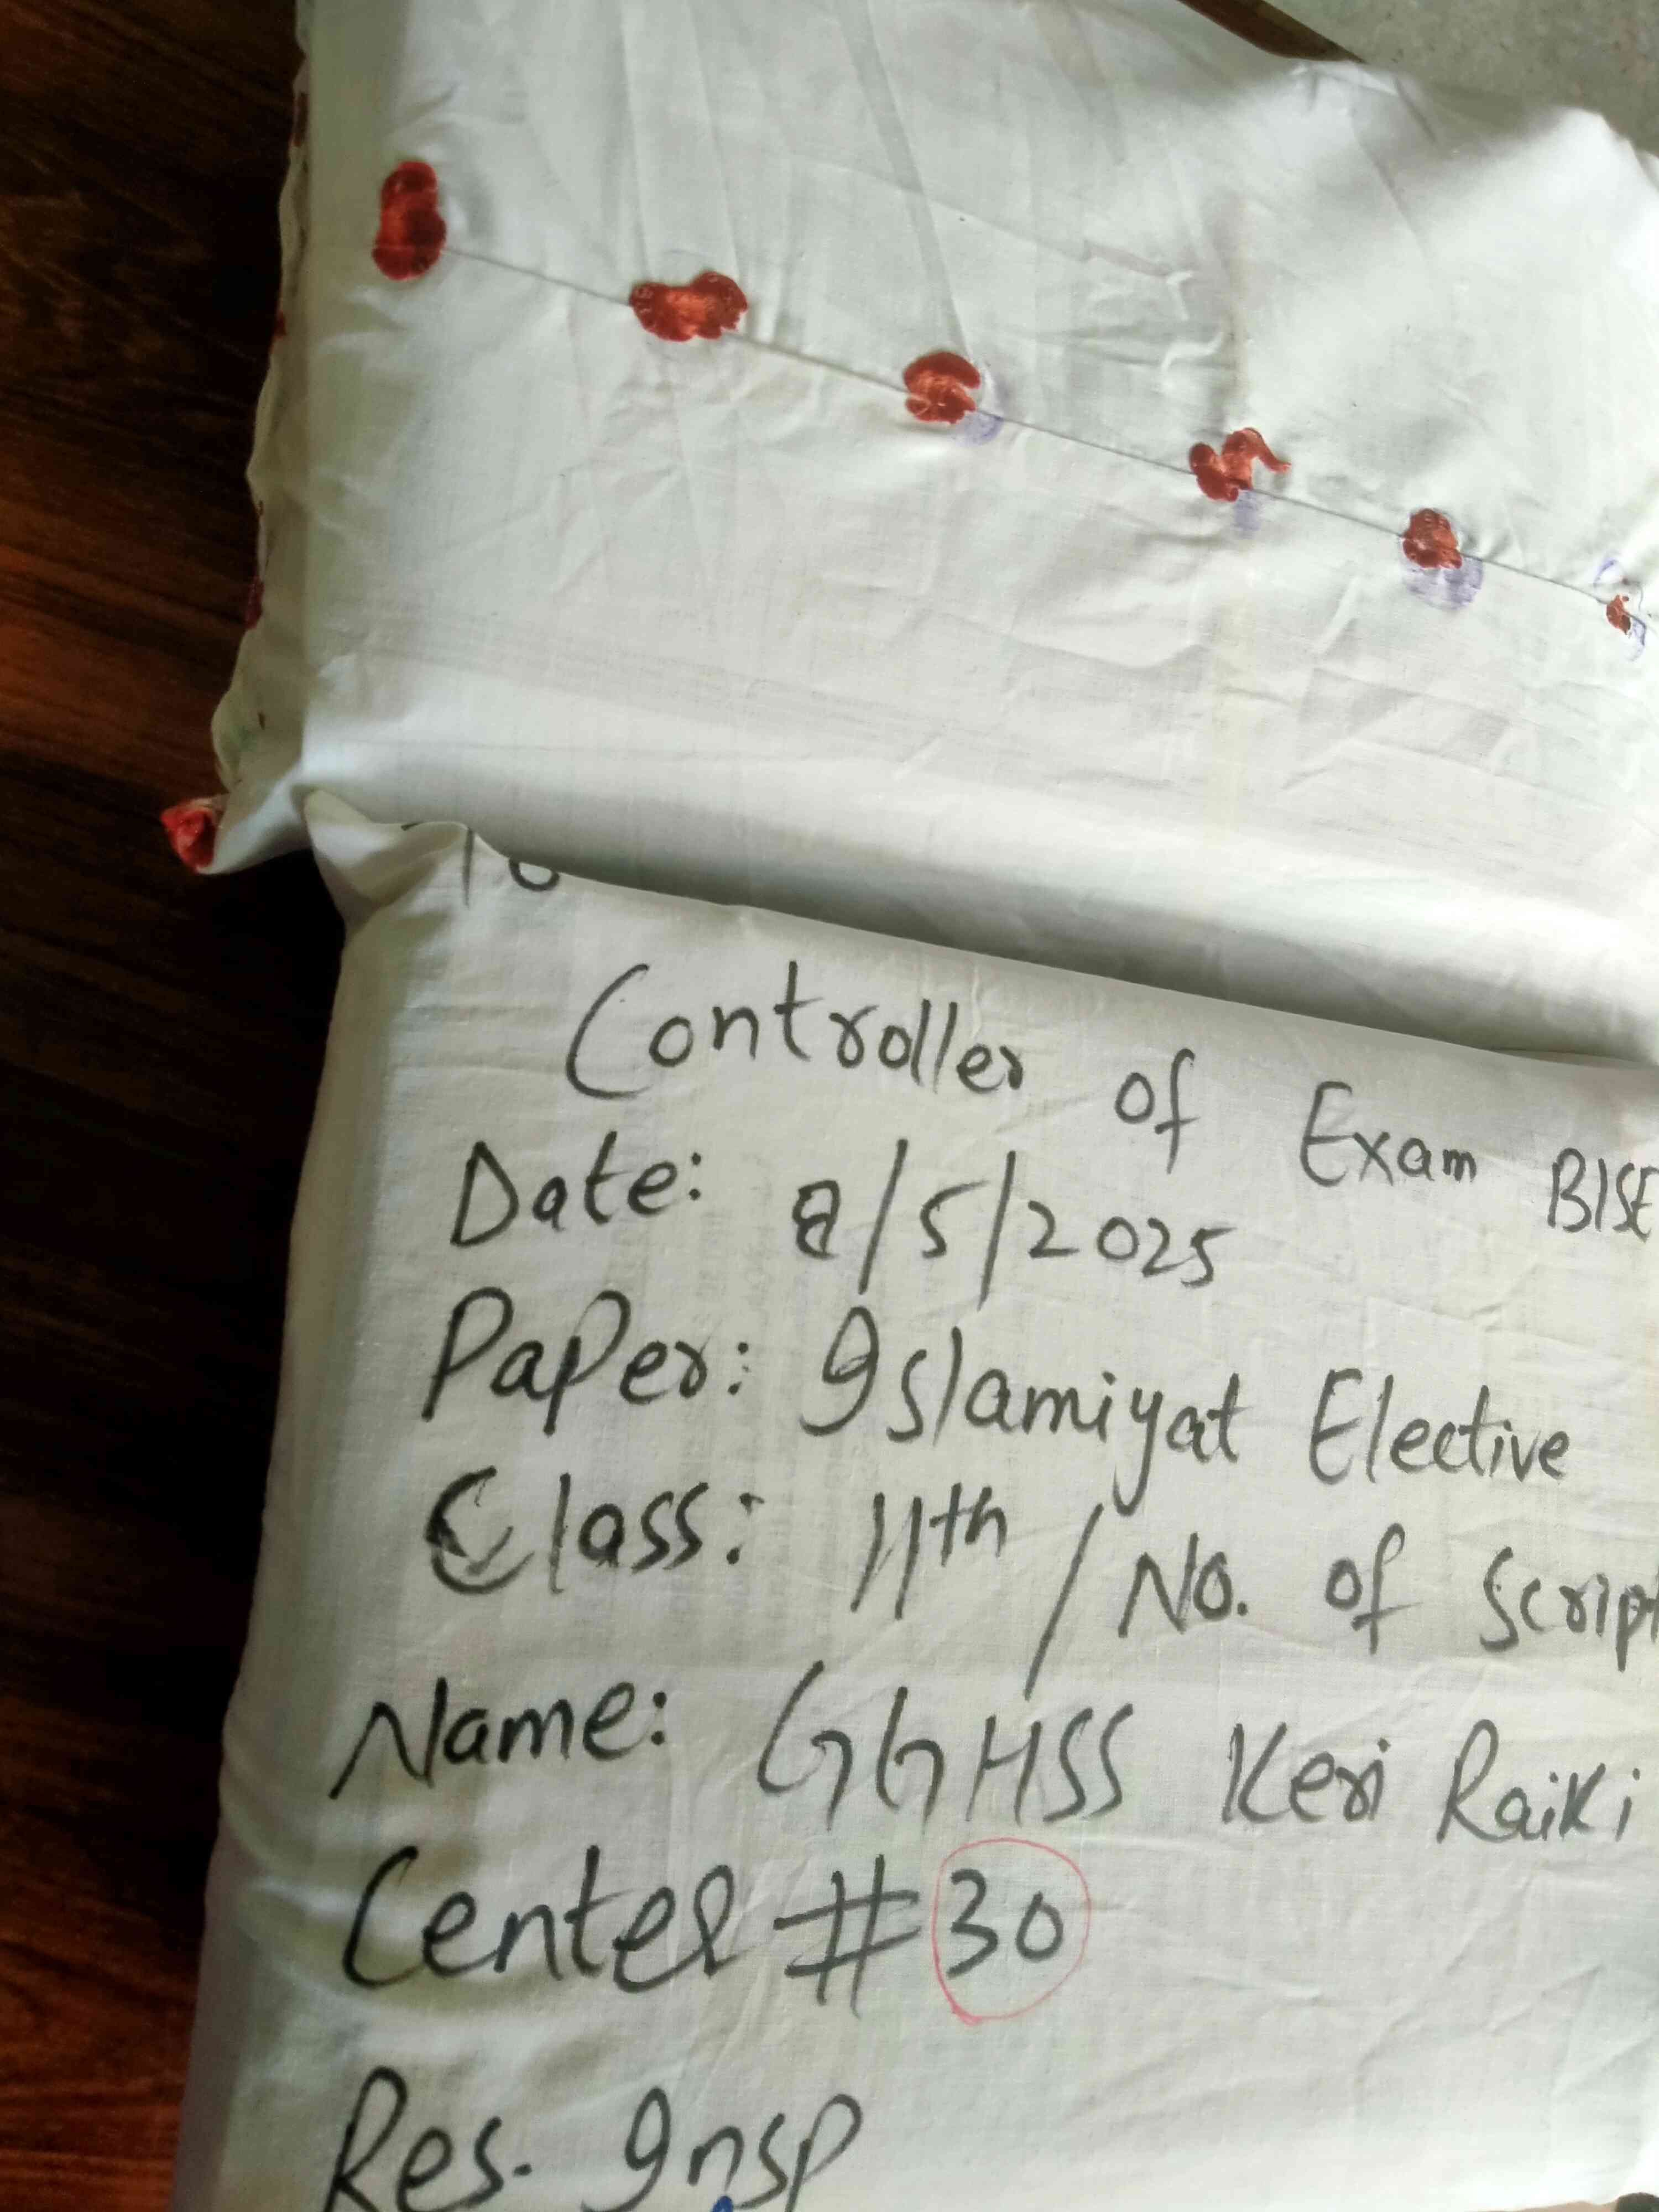 To
Controller of Exam BISE
Date: 8/5/2025
Paper: Islamiyat Elective
Class: 11th / No. of Script
Name: GGHSS Keri Raiki
Center #30
Res. Insp